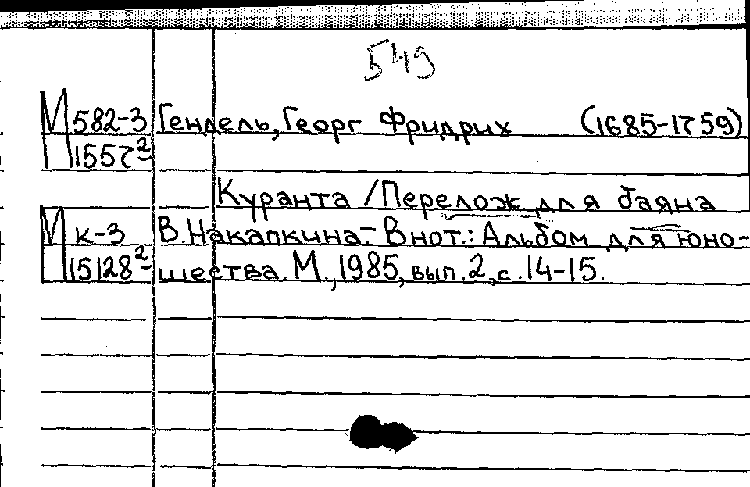 549
М 582-3 Гендель, Георг Фридрих (1685-1759)
П 1557²
Куранта / Перелож для баяна
М к-3 В. Накапкина.- В нот.: Альбом для юно-
П 15128²- шества. М., 1985, вып. 2, с. 14-15.